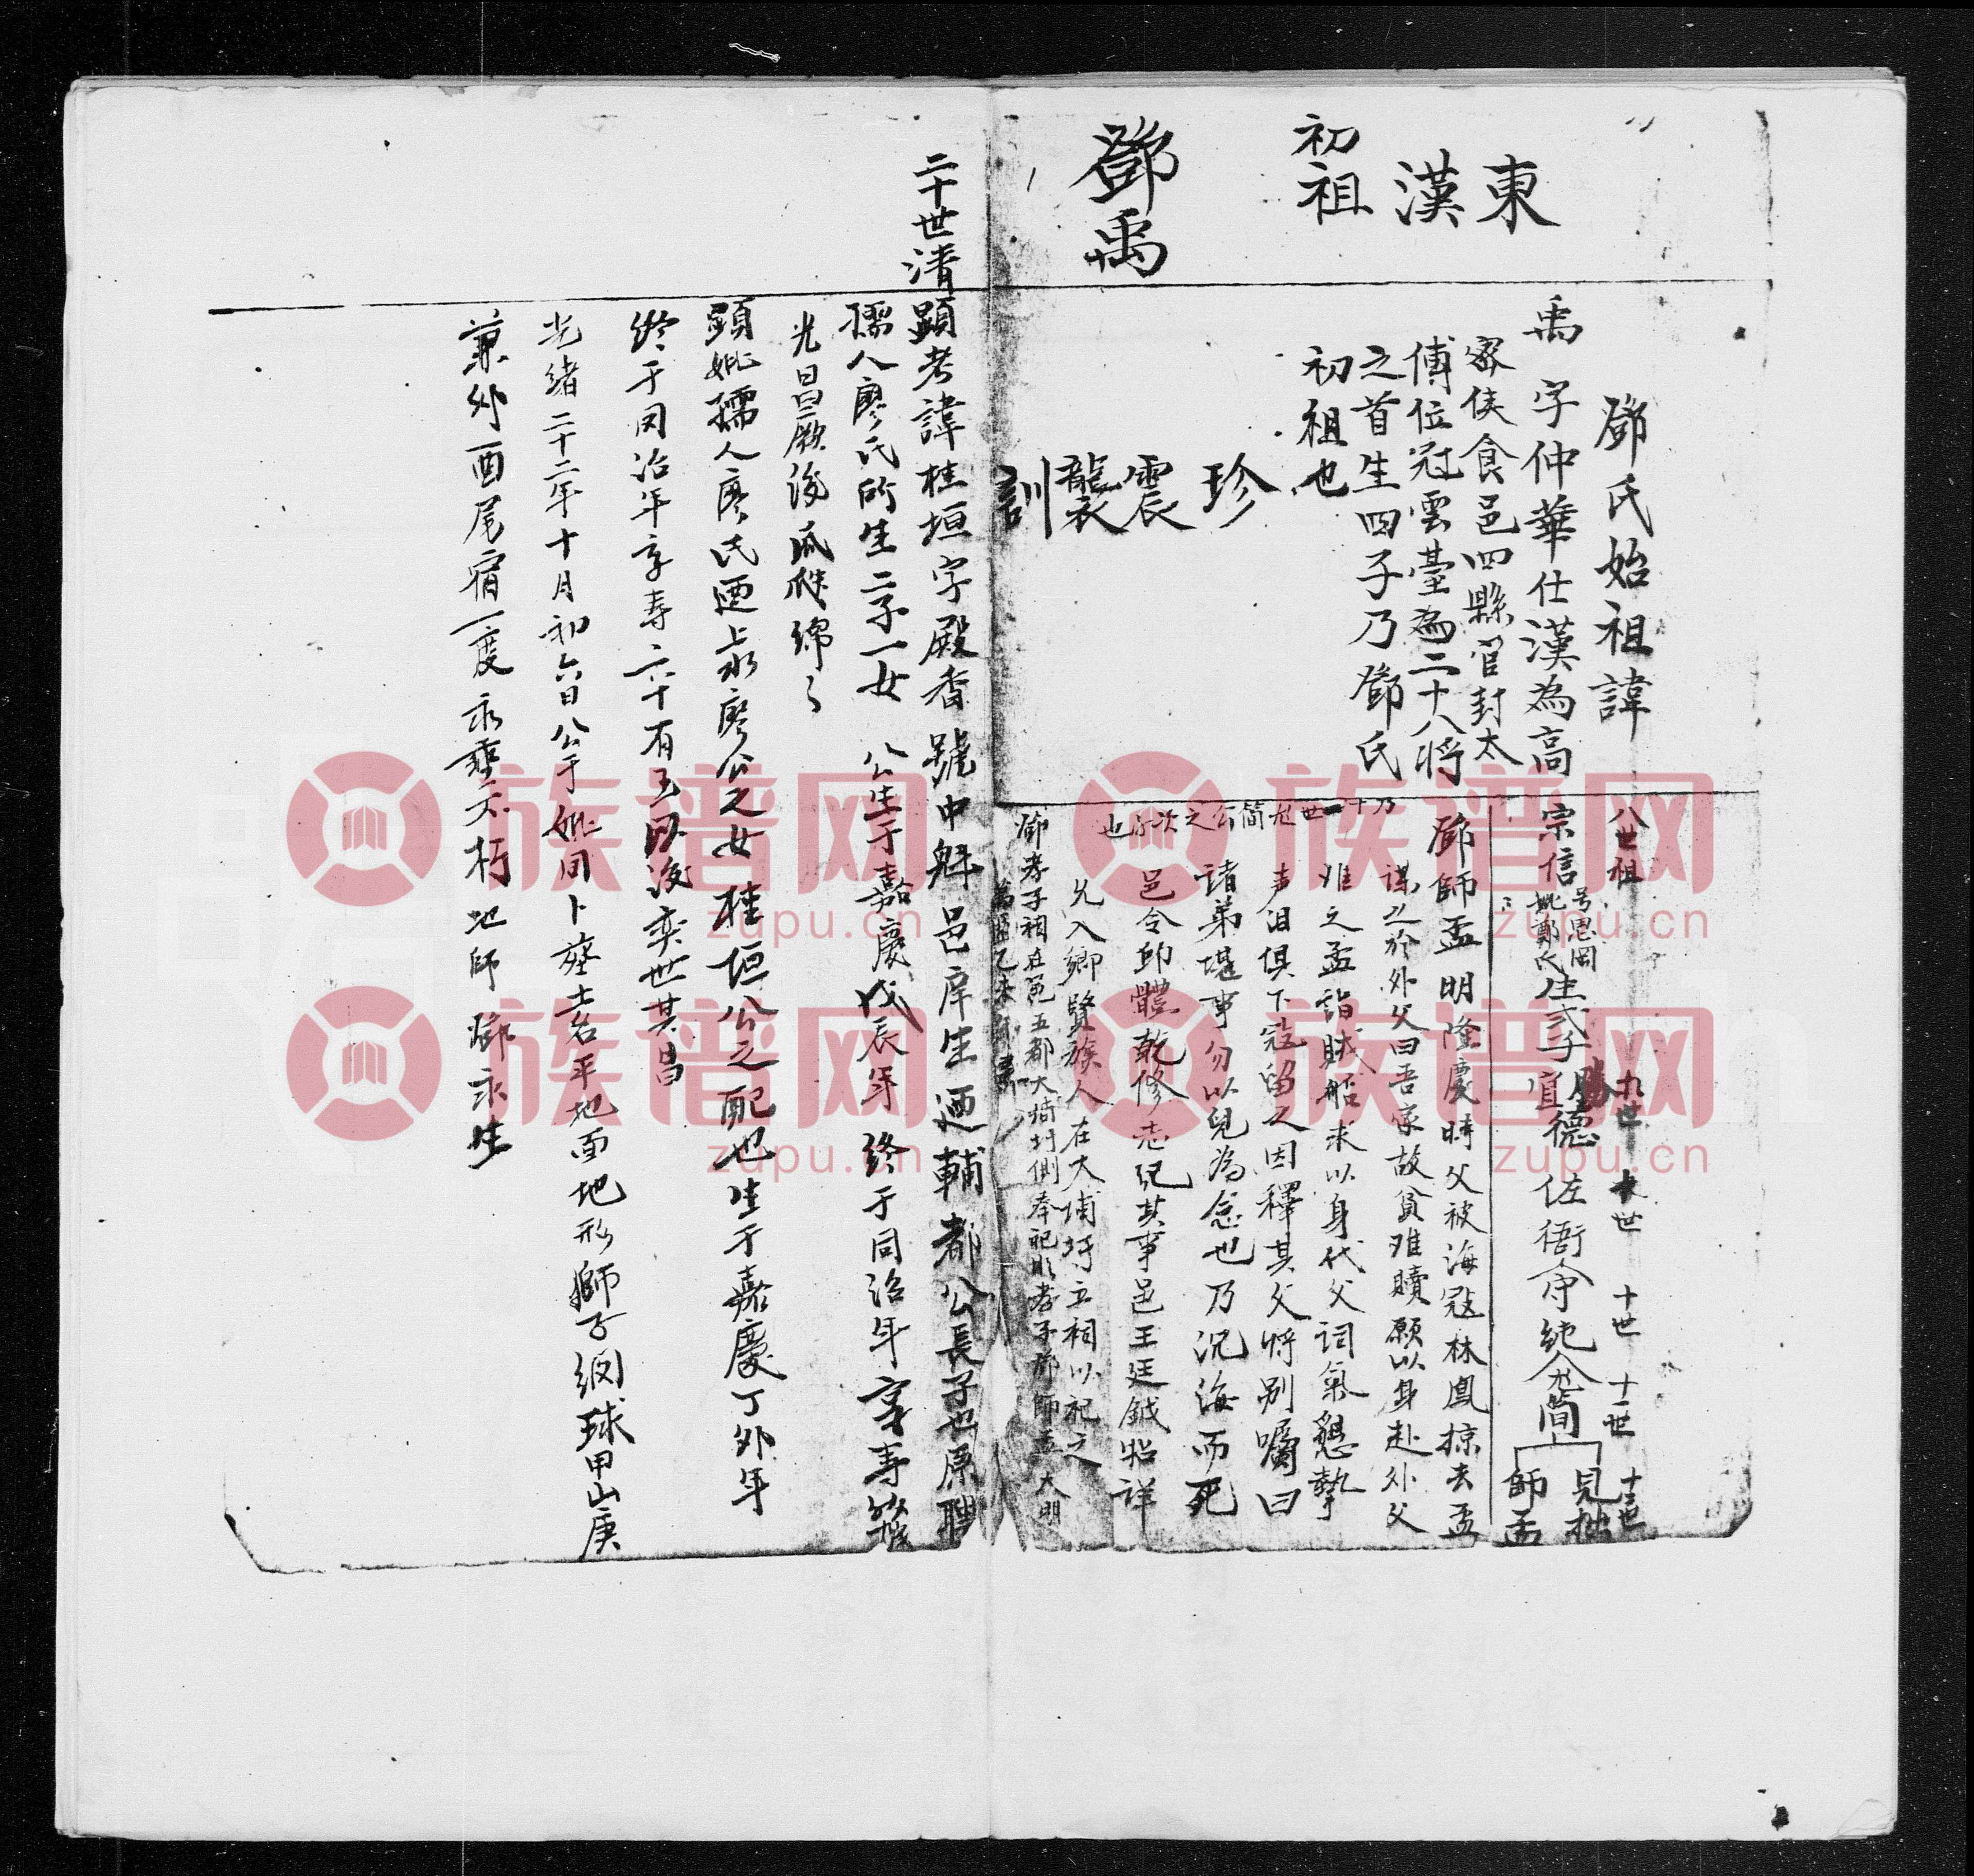 東
漢
初祖
鄧禹
鄧氏始祖諱
禹字仲華仕漢為高
密侯食邑四縣官封太
傅位冠雲臺為二十八將
之首生四子乃鄧氏
初祖也
珍
震
襲
訓
八世祖 九世 十世 十世 十一世 十二世
宗信
号思岡
妣鄭氏
生弍子
直德
佐衙
守純公
簡
見拙
師孟
鄧師孟明隆慶時父被海冦林鳳掠去孟
謀之於外父曰吾家故貧难贖願以身赴外父
难之孟詣賊船求以身代父詞氣懇摯
声泪俱下冦留之因釋其父將别囑曰
諸弟堪事勿以兒為念也乃沉海而死
邑令邱體乾修志紀其事邑王廷鉞照詳
允入鄉賢族人在大埔圩立祠以祀之
鄧孝子祠在邑五都大埔圩側奉祀明孝子鄧師孟大明
萬曆乙未
乃十一世祖簡公之次子也
二十世清
顕考諱桂垣字殿香號中魁邑庠生廼輔都公長子也原聘
孺人廖氏所生二子一女 公生于嘉慶戊辰年 終于同治年享壽
光曰昌厥後瓜瓞綿々
顕妣孺人廖氏廼上水廖公之女桂垣公之配也生于嘉慶丁外年
終于同治年享寿六十有五日後奕世其昌
光绪二十二年十月初六日公于妣同卜葬土名平地面地形獅子绸球甲山庚
兼外酉尾宿一度永垂不朽地師鄧永生
族谱网
zupu.cn
族谱网
zupu.cn
族谱网
zupu.cn
族谱网
zupu.cn